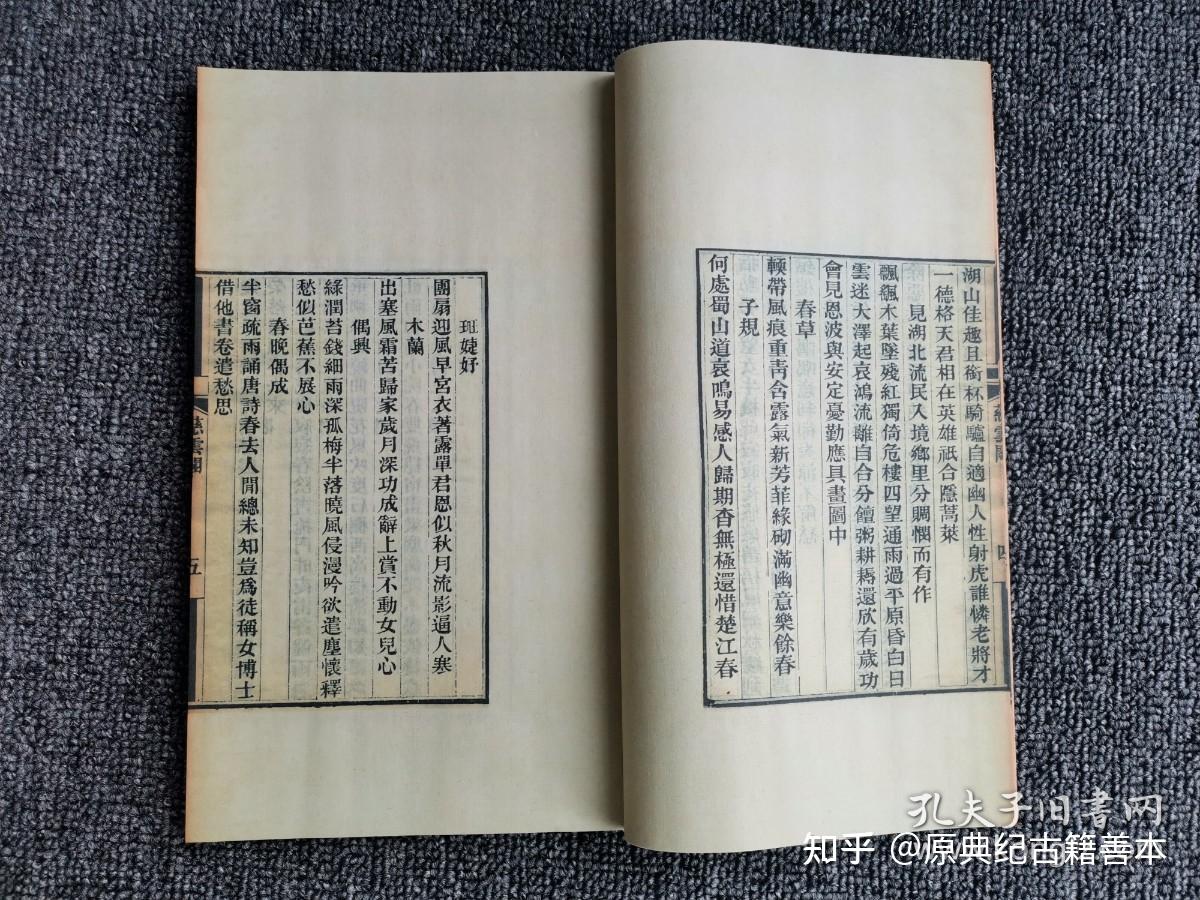 湖山佳趣且銜杯騎驢自適幽人性射虎誰憐老將才
一德格天君相在英雄祇合隱蒿萊
見湖北流民入境鄉里分賙憫而有作
飄飄木葉墜殘紅獨倚危樓四望通雨過平原昏白日
雲迷大澤起哀鴻流離自合分饘粥耕耨還欣有歲功
會見恩波與安定憂勤應具畫圖中
春草
輭帶風痕重青含露氣新芳菲緣砌滿幽意樂餘春
子規
何處蜀山道哀鳴易感人歸期杳無極還惜楚江春
慈雲閣
四
班婕妤
團扇迎風早宮衣著露單君恩似秋月流影逼人寒
木蘭
出塞風霜苦歸家歲月深功成辭上賞不動女兒心
偶興
綠潤苔錢細雨深孤梅半落曉風侵漫吟欲遣塵懷釋
愁似芭蕉不展心
春晚偶成
半窗疏雨誦唐詩春去人閒總未知豈爲徒稱女博士
借他書卷遣愁思
慈雲閣
五
孔夫子旧书网
知乎 @原典纪古籍善本